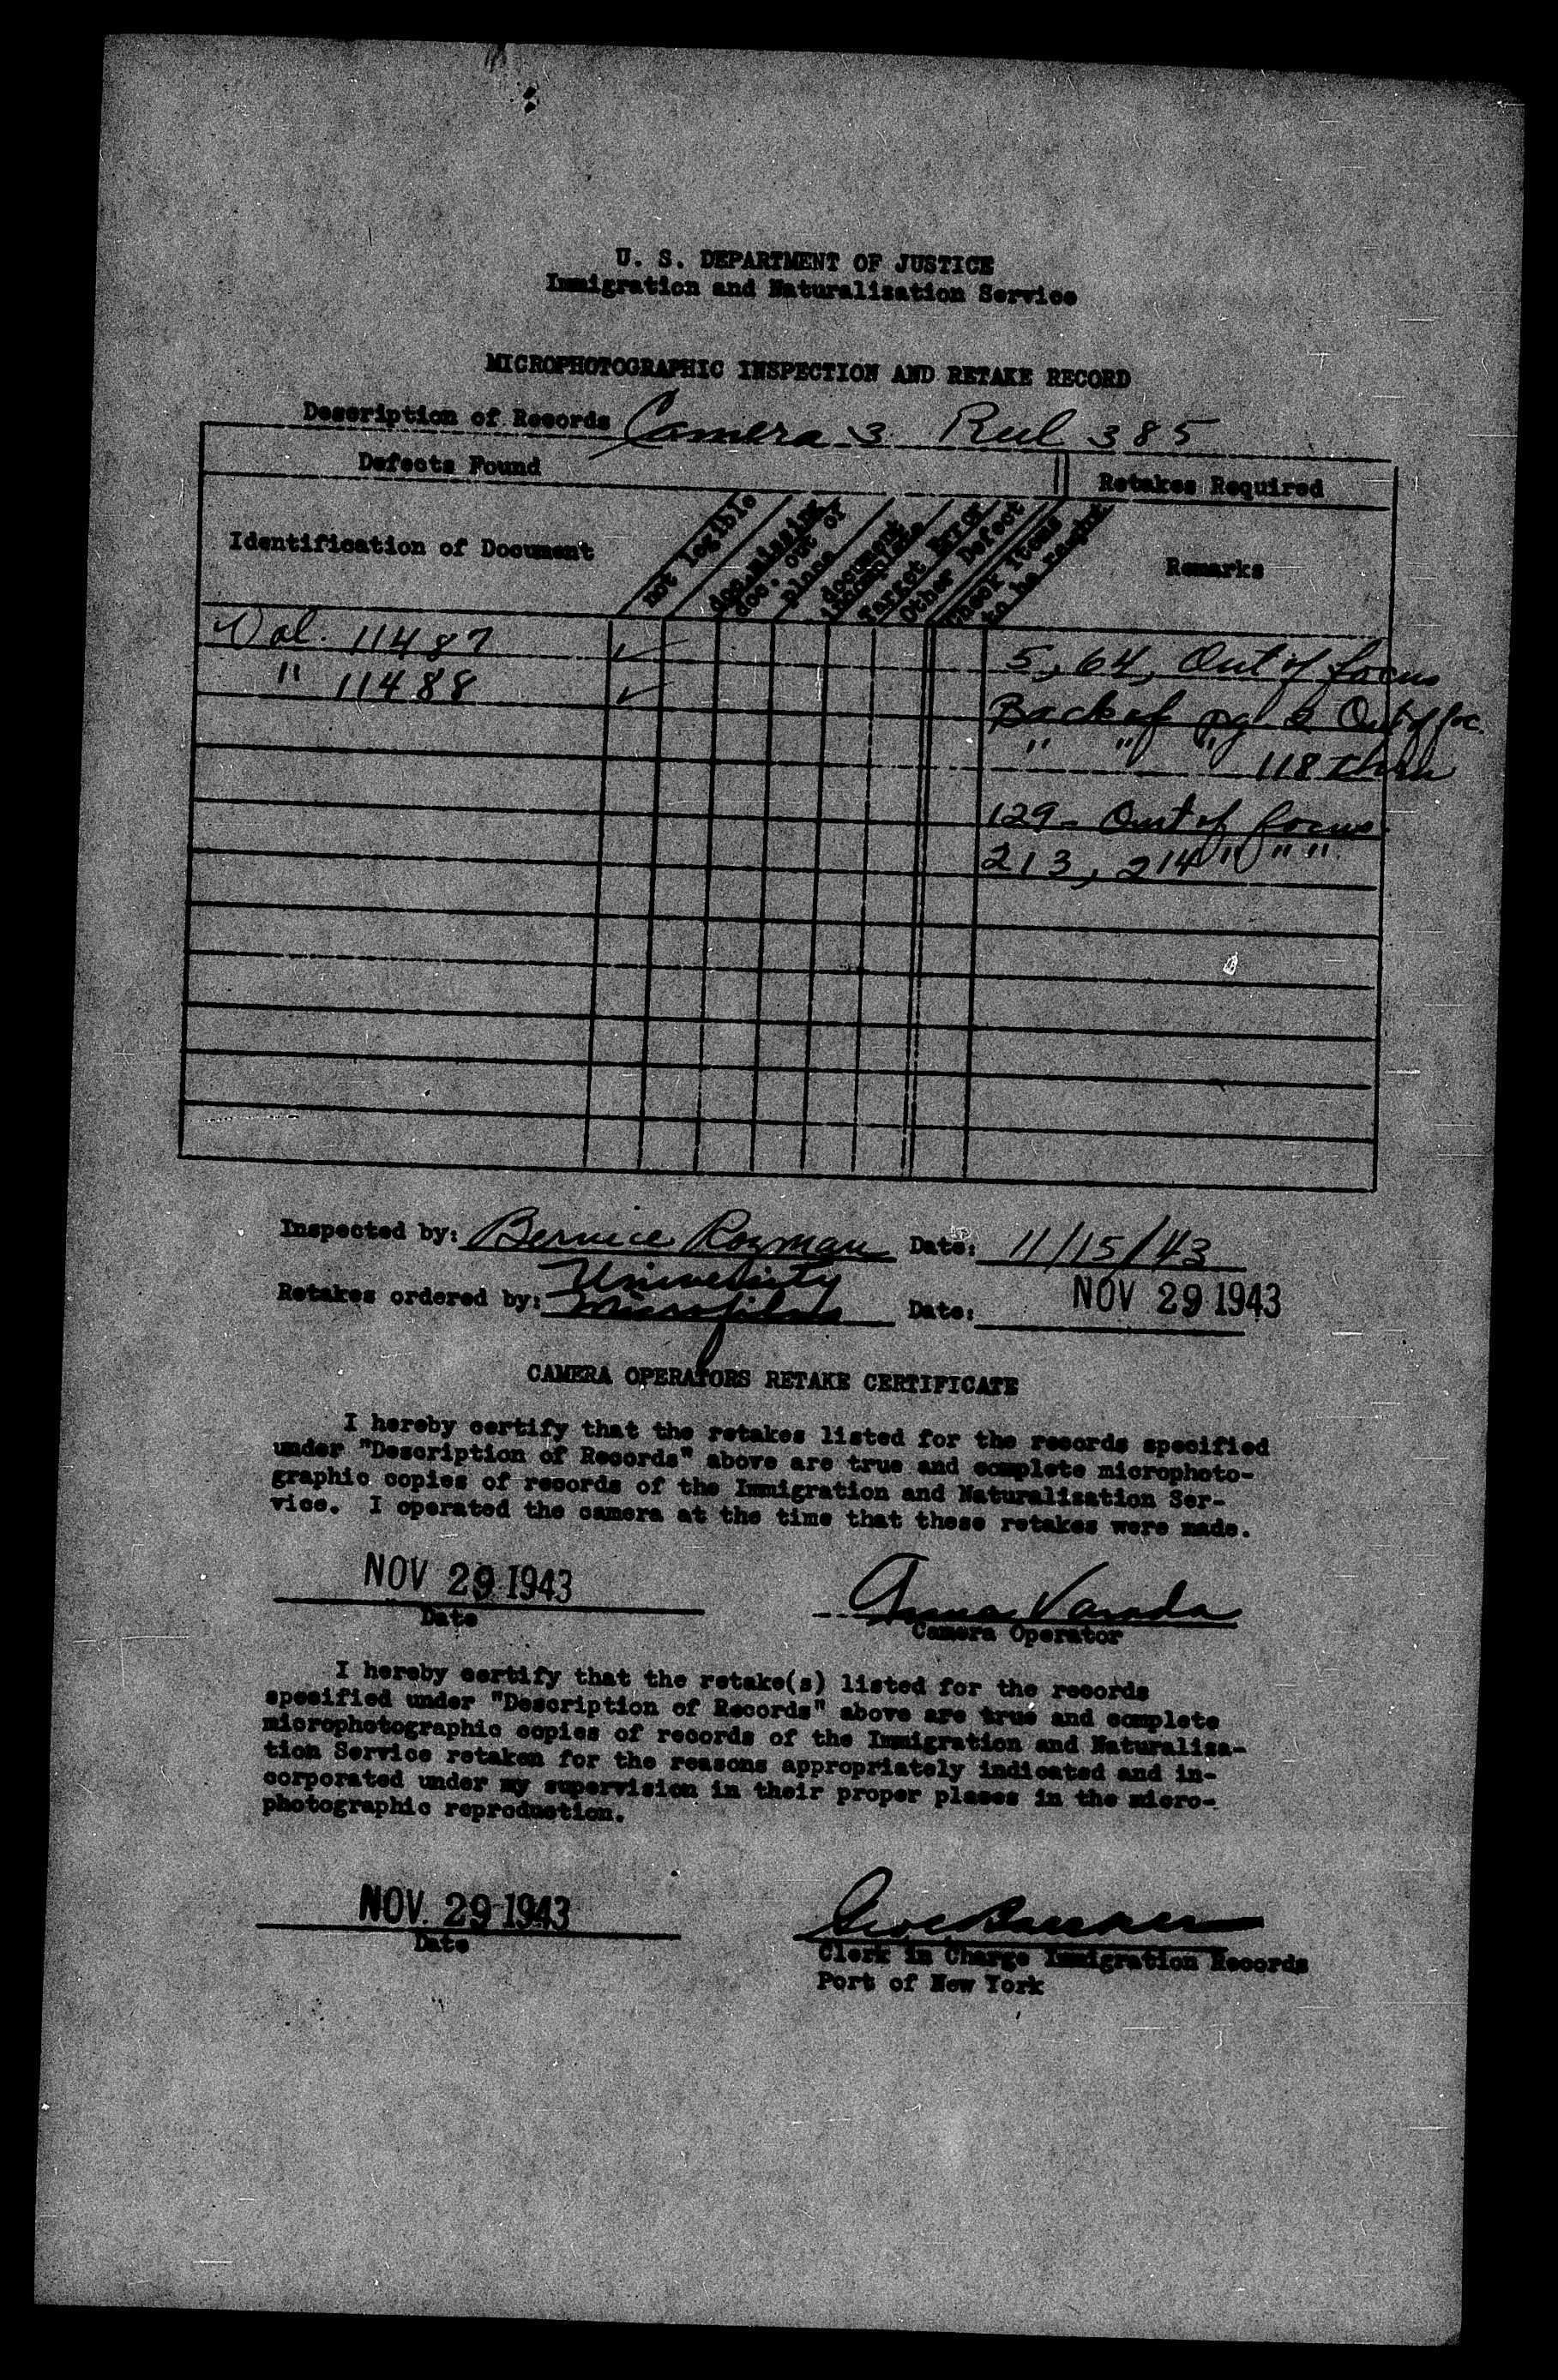 U. S. DEPARTMENT OF JUSTICE
Immigration and Naturalization Service
MICROPHOTOGRAPHIC INSPECTION AND RETAKE RECORD
Description of Records Camera 3 Reel 385
Defects Found Retakes Required
Identification of Document
not legible
doc. missing
doc. out of
place
document
incomplete
Target Error
Other Defect
Check Items
to be
Remarks
Vol. 11487 ✓ 5, 64, Out of focus
" 11488 ✓ Back of pg 2 Out of foc.
" " " 118 thru
129 - Out of focus
213, 214 " " "
Inspected by: Bernice Rozman Date: 11/15/43
University
Retakes ordered by: Microfilms Date: NOV 29 1943
CAMERA OPERATORS RETAKE CERTIFICATE
I hereby certify that the retakes listed for the records specified
under "Description of Records" above are true and complete microphoto-
graphic copies of records of the Immigration and Naturalization Ser-
vice. I operated the camera at the time that these retakes were made.
NOV 29 1943 Anna Varada
Date Camera Operator
I hereby certify that the retake(s) listed for the records
specified under "Description of Records" above are true and complete
microphotographic copies of records of the Immigration and Naturaliza-
tion Service retaken for the reasons appropriately indicated and in-
corporated under my supervision in their proper places in the micro-
photographic reproduction.
NOV. 29 1943
Date Clerk in Charge Immigration Records
Port of New York